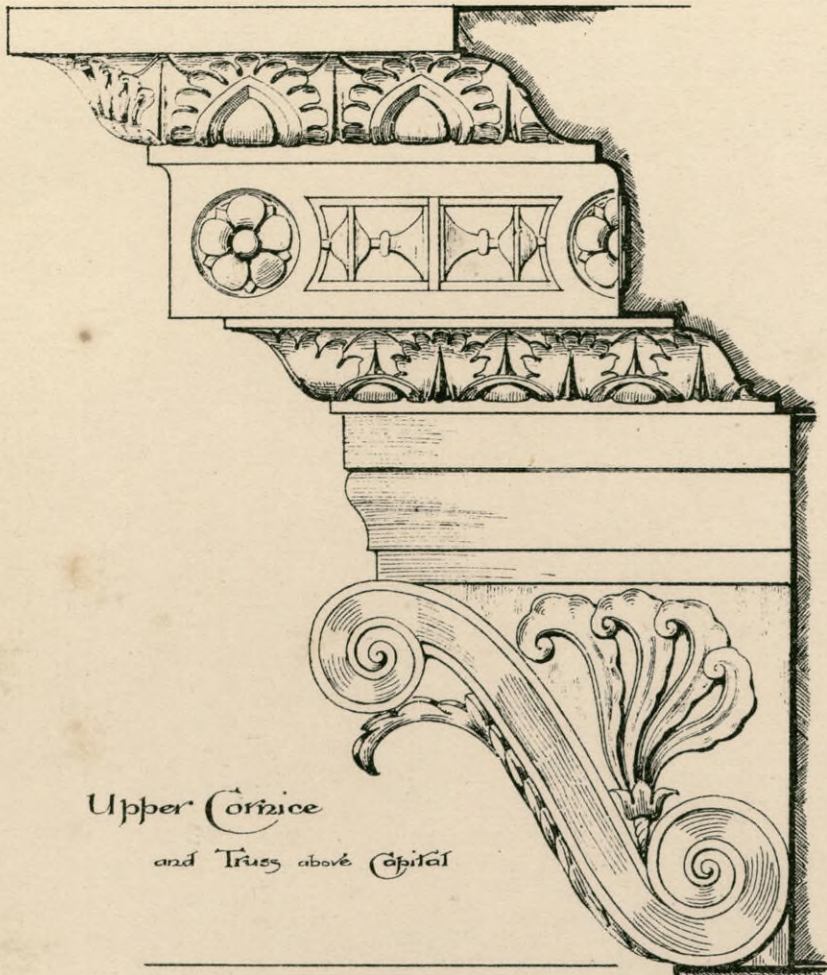 Upper Cornice
and Truss above Capital